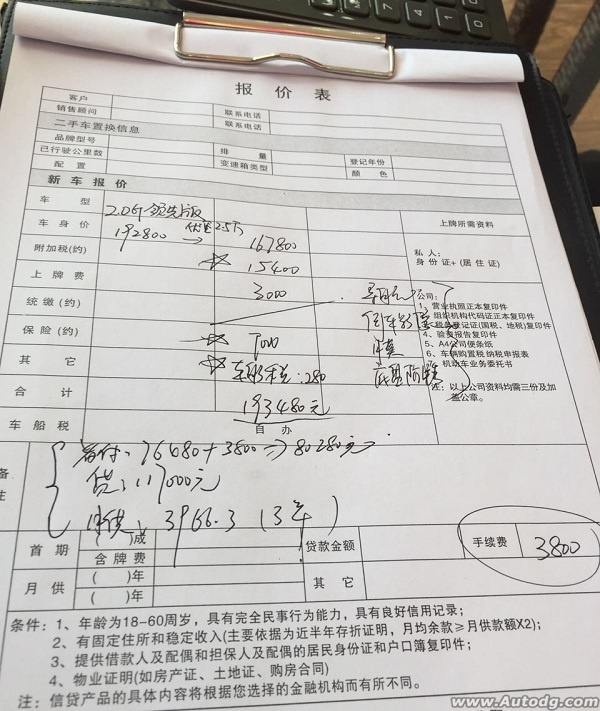 报价表
客户
销售顾问 联系电话
二手车置换信息 联系电话
品牌型号
已行驶公里数 排量 登记年份
配置 变速箱类型 颜色
新车报价
车型 2.0G 领先版 上牌所需资料
车身价 192800 优惠2.5万 → 167800
附加税(约) 15400
私人:
身份证+(居住证)
上牌费 3000
公司:
1、营业执照正本复印件
统缴(约) 倒车影像
2、组织机构代码证正本复印件
3、税务登记证(国税、地税)复印件
保险(约) 7000
4、验资报告复印件
5、A4公司便条纸
其它 车船税:280 底盘防锈
6、车辆购置税纳税申报表
7、机动车业务委托书
合计 193480元
注:以上公司资料均需三份及加
盖公章。
车船税 自办
备注
首付:76480+3800=>80280元
贷:117000元
月供:3966.3(3年)
首期 ( )成 贷款金额 手续费 3800
含牌费
月供 ( )年 其它
( )年
条件:1、年龄为18-60周岁,具有完全民事行为能力,具有良好信用记录;
2、有固定住所和稳定收入(主要依据为近半年存折证明,月均余款≥月供款额X2);
3、提供借款人及配偶和担保人及配偶的居民身份证和户口簿复印件;
4、物业证明(如房产证、土地证、购房合同)
注:信贷产品的具体内容将根据您选择的金融机构而有所不同。
www.Autodg.com